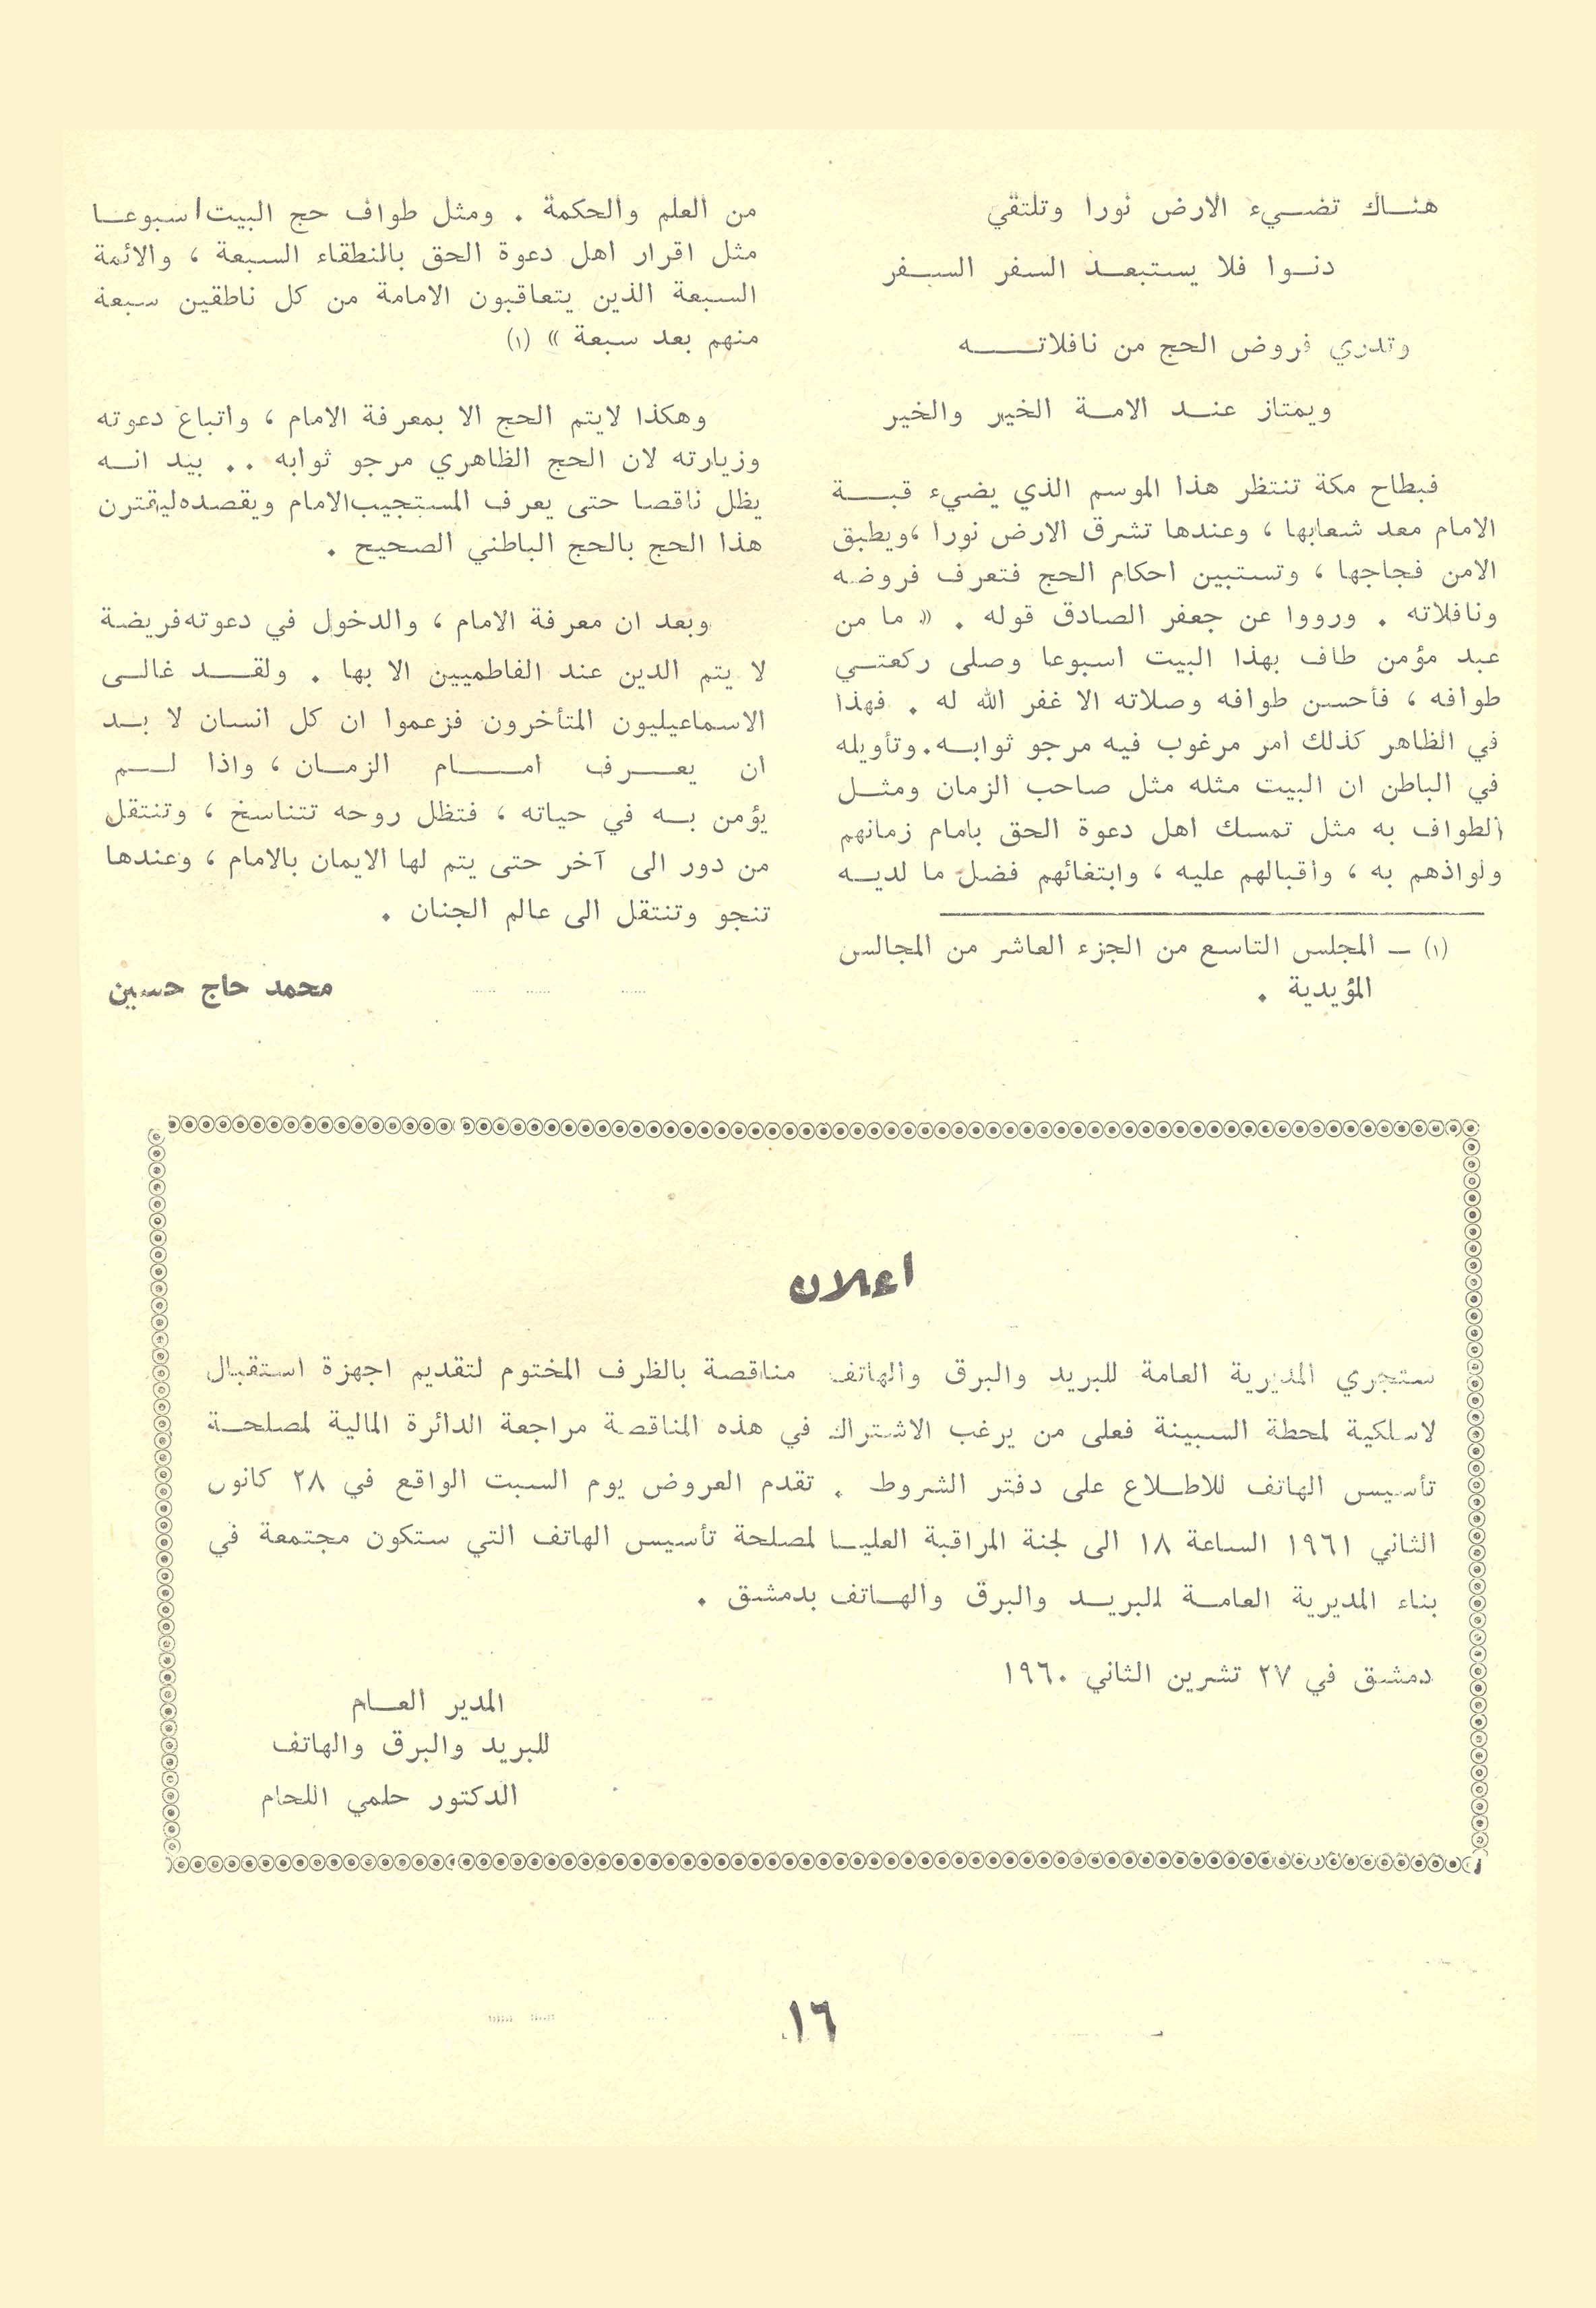 هناك تضيء الارض نورا وتلتقي
دنوا فلا يستبعد السفر السفر
وتدري فروض الحج من نافلاته
ويمتاز عند الامة الخير والخير
فبطاح مكة تنتظر هذا الموسم الذي يضيء قبة
الامام معد شعابها ، وعندها تشرق الارض نورا ، ويطبق
الامن فجاجها ، وتستبين احكام الحج فتعرف فروضه
ونافلاته . ورووا عن جعفر الصادق قوله . « ما من
عبد مؤمن طاف بهذا البيت اسبوعا وصلى ركعتي
طوافه ، فأحسن طوافه وصلاته الا غفر الله له . فهذا
في الظاهر كذلك امر مرغوب فيه مرجو ثوابه . وتأويله
في الباطن ان البيت مثله مثل صاحب الزمان ومثل
الطواف به مثل تمسك اهل دعوة الحق بامام زمانهم
ولواذهم به ، واقبالهم عليه ، وابتغائهم فضل ما لديه
(١) ــ المجلس التاسع من الجزء العاشر من المجالس
المؤيدية .
من العلم والحكمة . ومثل طواف حج البيت اسبوعا
مثل اقرار اهل دعوة الحق بالنطقاء السبعة ، والائمة
السبعة الذين يتعاقبون الامامة من كل ناطقين سبعة
منهم بعد سبعة » (١)
وهكذا لايتم الحج الا بمعرفة الامام ، واتباع دعوته
وزيارته لان الحج الظاهري مرجو ثوابه . . بيد انه
يظل ناقصا حتى يعرف المستجيب الامام ويقصده ليقترن
هذا الحج بالحج الباطني الصحيح .
وبعد ان معرفة الامام ، والدخول في دعوته فريضة
لا يتم الدين عند الفاطميين الا بها . ولقد غالى
الاسماعيليون المتأخرون فزعموا ان كل انسان لا بد
ان يعرف امام الزمان ، واذا لم
يؤمن به في حياته ، فتظل روحه تتناسخ ، وتنتقل
من دور الى آخر حتى يتم لها الايمان بالامام ، وعندها
تنجو وتنتقل الى عالم الجنان .
محمد حاج حسين
اعلان
ستجري المديرية العامة للبريد والبرق والهاتف مناقصة بالظرف المختوم لتقديم اجهزة استقبال
لاسلكية لمحطة السبينة فعلى من يرغب الاشتراك في هذه المناقصة مراجعة الدائرة المالية لمصلحة
تأسيس الهاتف للاطلاع على دفتر الشروط . تقدم العروض يوم السبت الواقع في ٢٨ كانون
الثاني ١٩٦١ الساعة ١٨ الى لجنة المراقبة العليا لمصلحة تأسيس الهاتف التي ستكون مجتمعة في
بناء المديرية العامة للبريد والبرق والهاتف بدمشق .
دمشق في ٢٧ تشرين الثاني ١٩٦٠
المدير العام
للبريد والبرق والهاتف
الدكتور حلمي اللحام
١٦